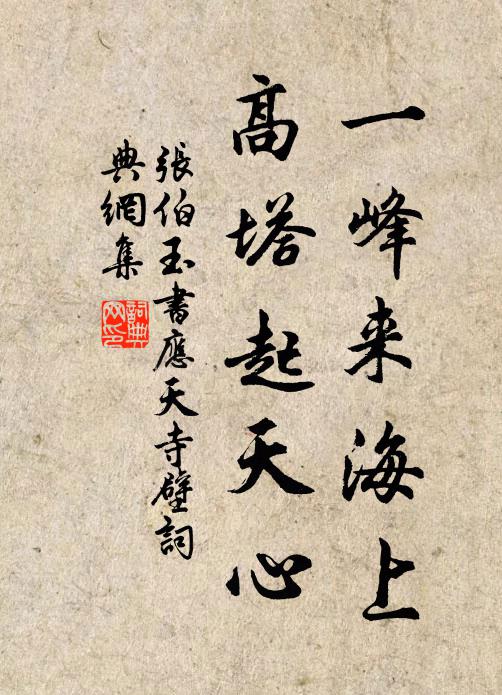 一峰来海上
高塔起天心
張伯玉書應天寺壁詞
典網集
詞典
网印